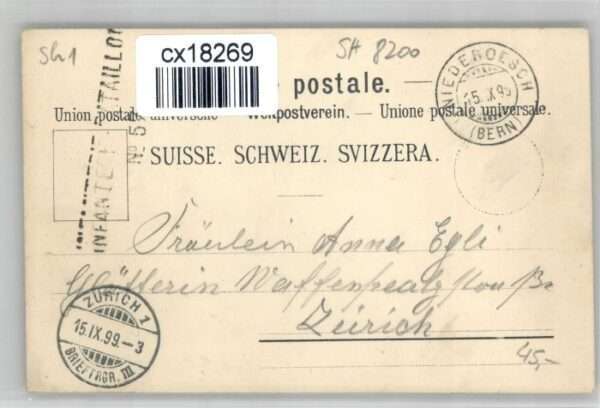 Sh1
cx18269
SH 8200
postale.
Union postale universelle — Weltpostverein. — Unione postale universale.
SUISSE. SCHWEIZ. SVIZZERA.
NIEDEROESCH
15.IX.99
(BERN)
INFANTERIE BATAILLON
No 5
Fräulein Anna Egli
Zürich
ZÜRICH 1
15.IX.99.-3
BRIEFTRGR. III
45,-